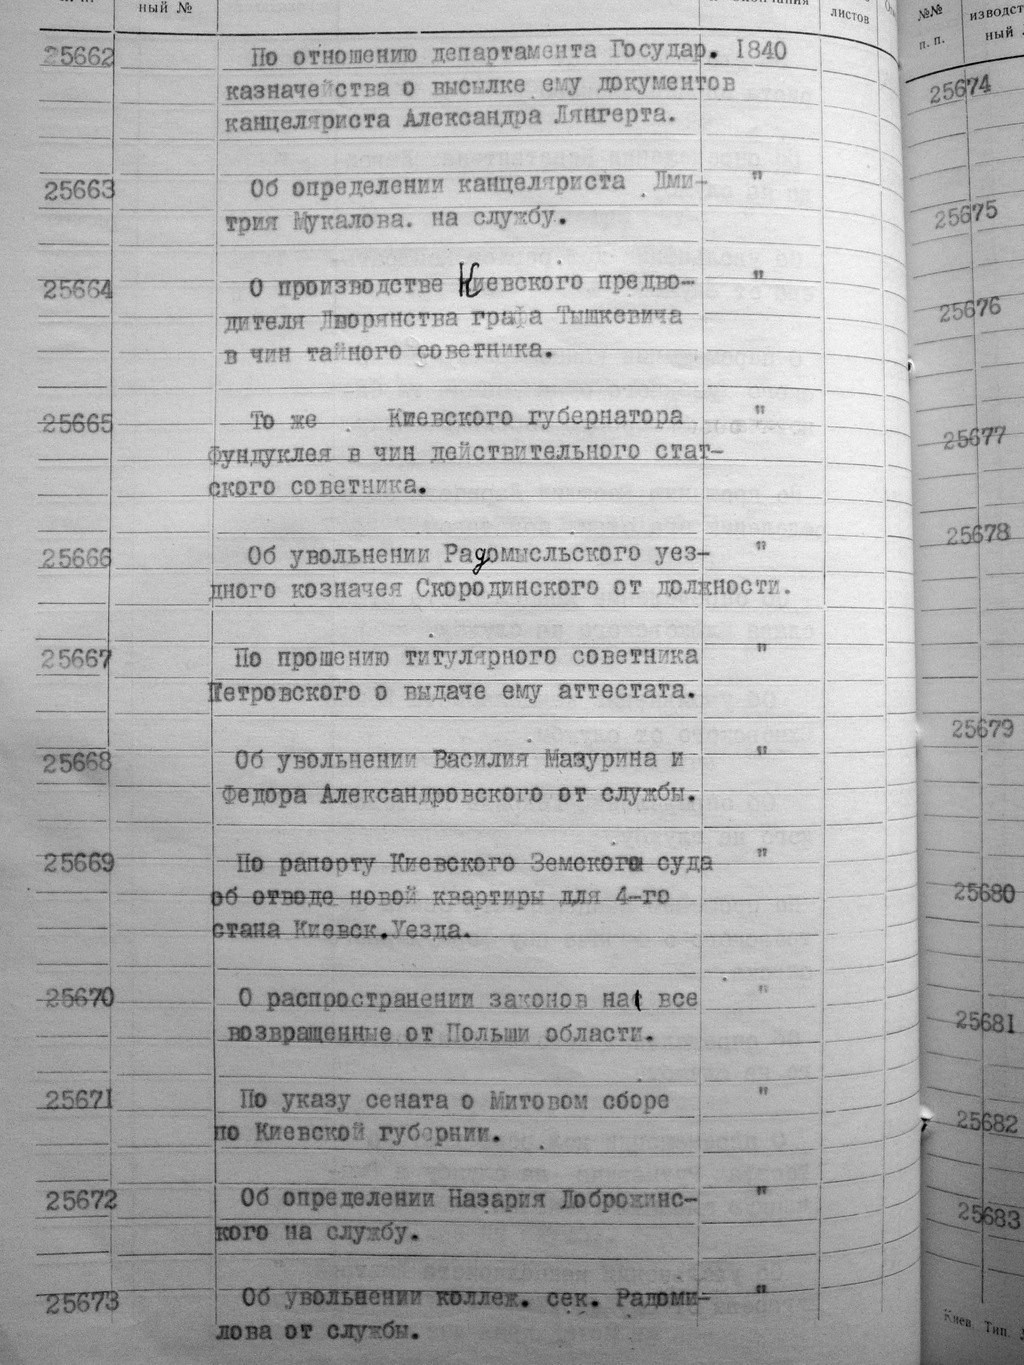 ный №
листов
25662 По отношению департамента Государ. 1840
казначейства о высылке ему документов
канцеляриста Александра Лянгерта.
25663 Об определении канцеляриста Дми- "
трия Мукалова. на службу.
25664 О производстве Киевского предво- "
дителя Дворянства графа Тышкевича
в чин тайного советника.
25665 То же Киевского губернатора "
Фундуклея в чин действительного стат-
ского советника.
25666 Об увольнении Радомысльского уез- "
дного козначея Скородинского от должности.
25667 По прошению титулярного советника "
Петровского о выдаче ему аттестата.
25668 Об увольнении Василия Мазурина и "
Федора Александровского от службы.
25669 По рапорту Киевского Земского суда "
об отводе новой квартиры для 4-го
стана Киевск.Уезда.
25670 О распространении законов на все "
возвращенные от Польши области.
25671 По указу сената о Митовом сборе "
по Киевской губернии.
25672 Об определении Назария Доброжинс- "
кого на службу.
25673 Об увольнении коллеж. сек. Радоми- "
лова от службы.
№№
п. п.
ный
25674
25675
25676
25677
25678
25679
25680
25681
25682
25683
Киев. Тип.